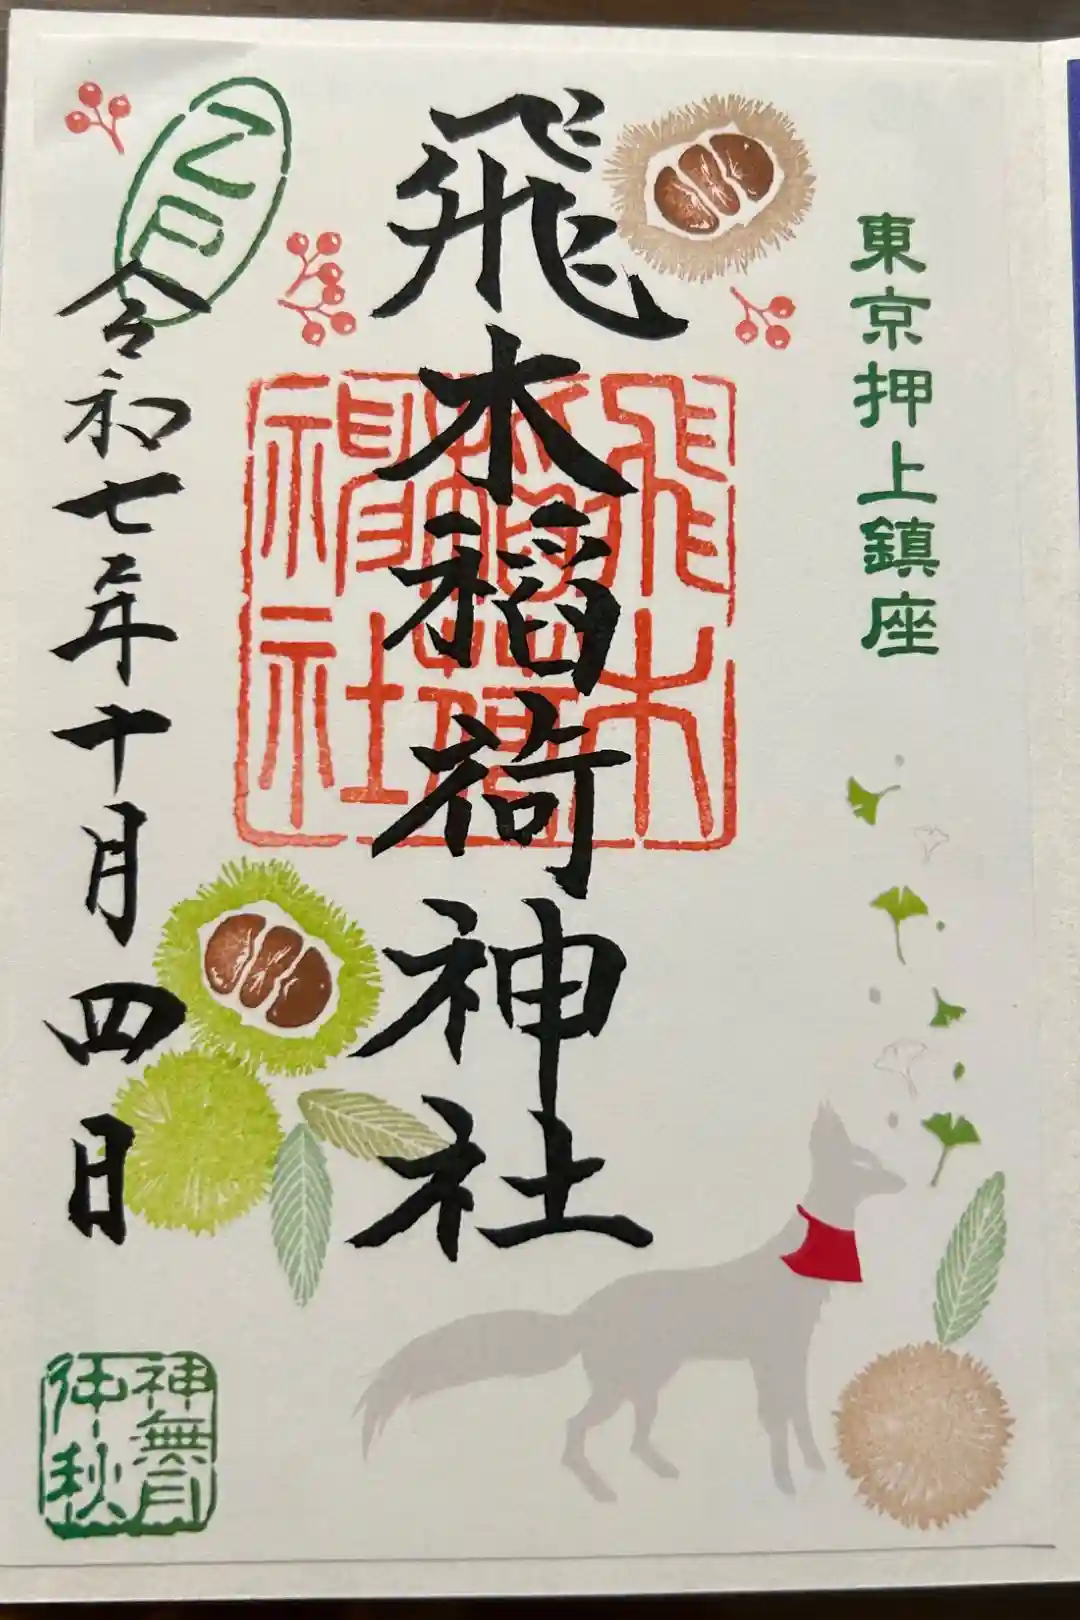 東京押上鎮座
飛木稲荷神社
飛木稲荷神社
令和七年十月四日
神無月
仲秋